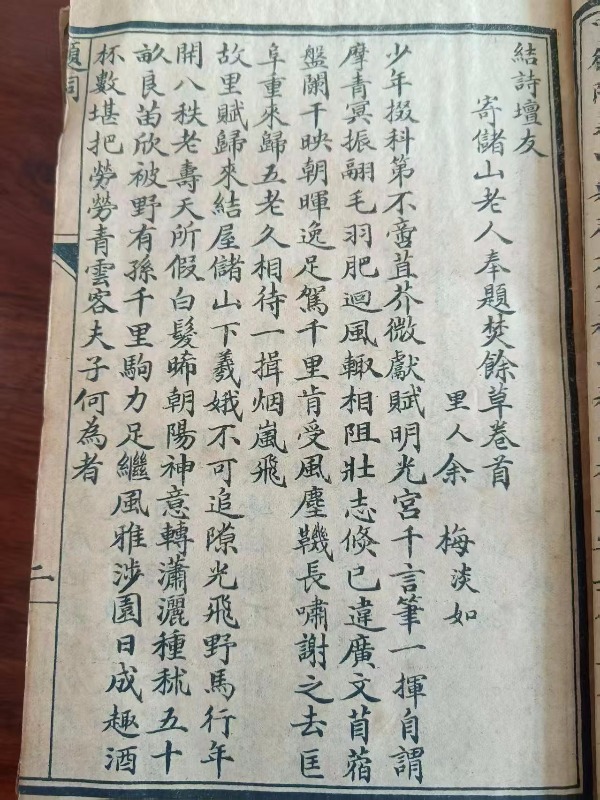 結詩壇友
寄儲山老人奉題焚餘草卷首
里人余 梅淡如
少年掇科第不啻苴芥微獻賦明光宮千言筆一揮自謂
摩青冥振翮毛羽肥迴風輙相阻壯志倐已違廣文苜蓿
盤闌干映朝暉逸足駕千里肯受風塵鞿長嘯謝之去匡
阜重來歸五老久相待一揖烟嵐飛
故里賦歸來結屋儲山下羲娥不可追隙光飛野馬行年
開八秩老壽天所假白髮晞朝陽神意轉瀟灑種秫五十
畝良苗欣被野有孫千里駒力足繼風雅涉園日成趣酒
杯數堪把勞勞青雲客夫子何為者
題詞
二